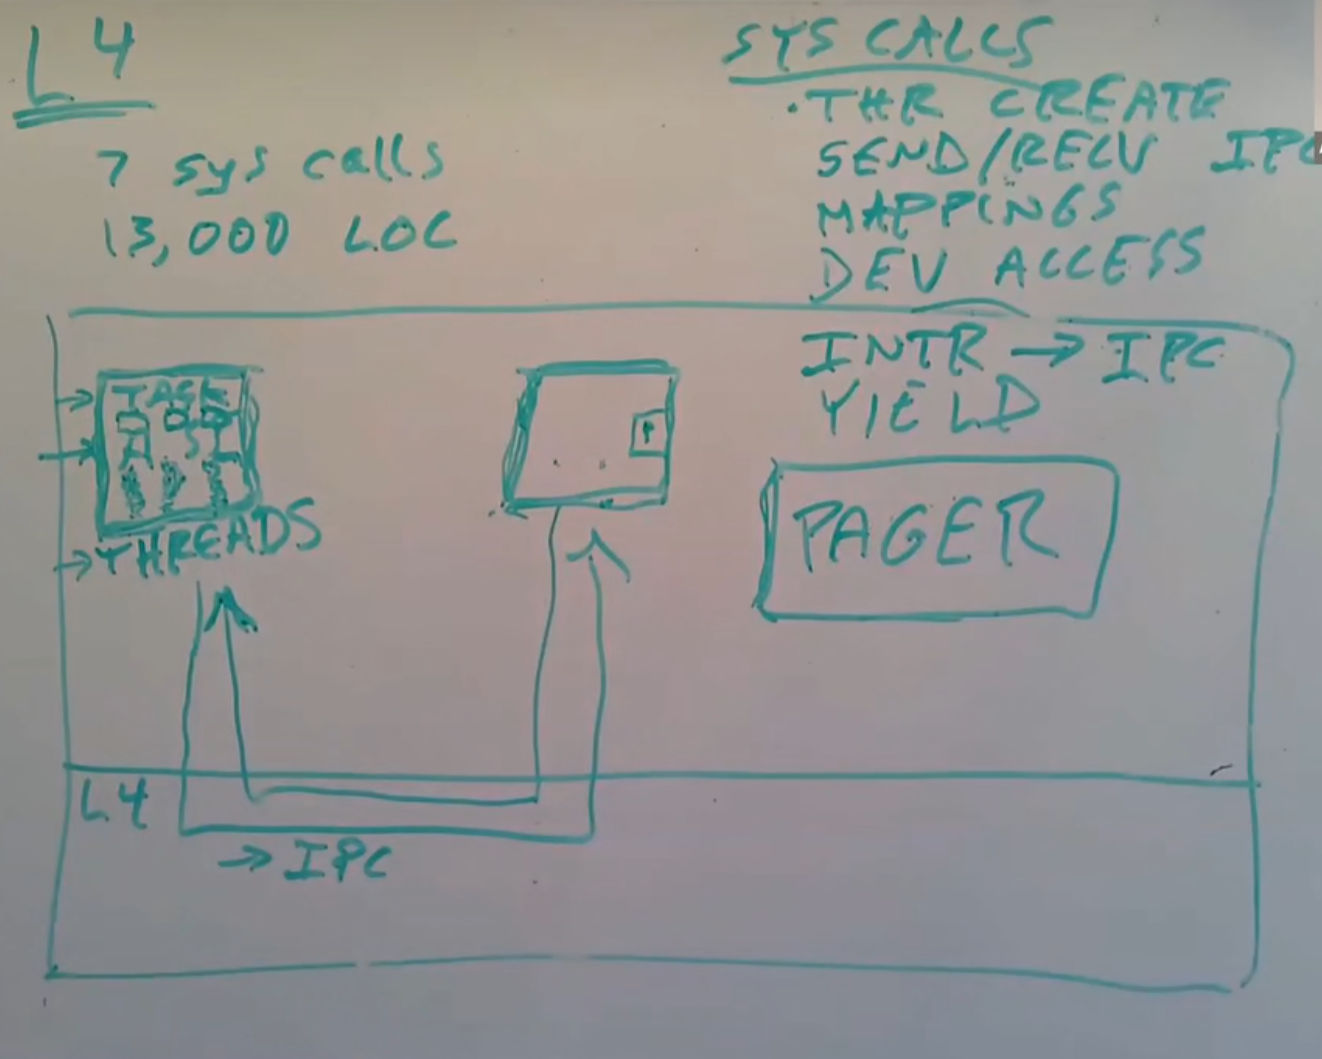 L4
7 sys calls
13,000 LOC
SYS CALLS
· THR CREATE
SEND/RECV IPC
MAPPINGS
DEV ACCESS
INTR → IPC
YIELD
TASK
THREADS
PAGER
L4
→ IPC